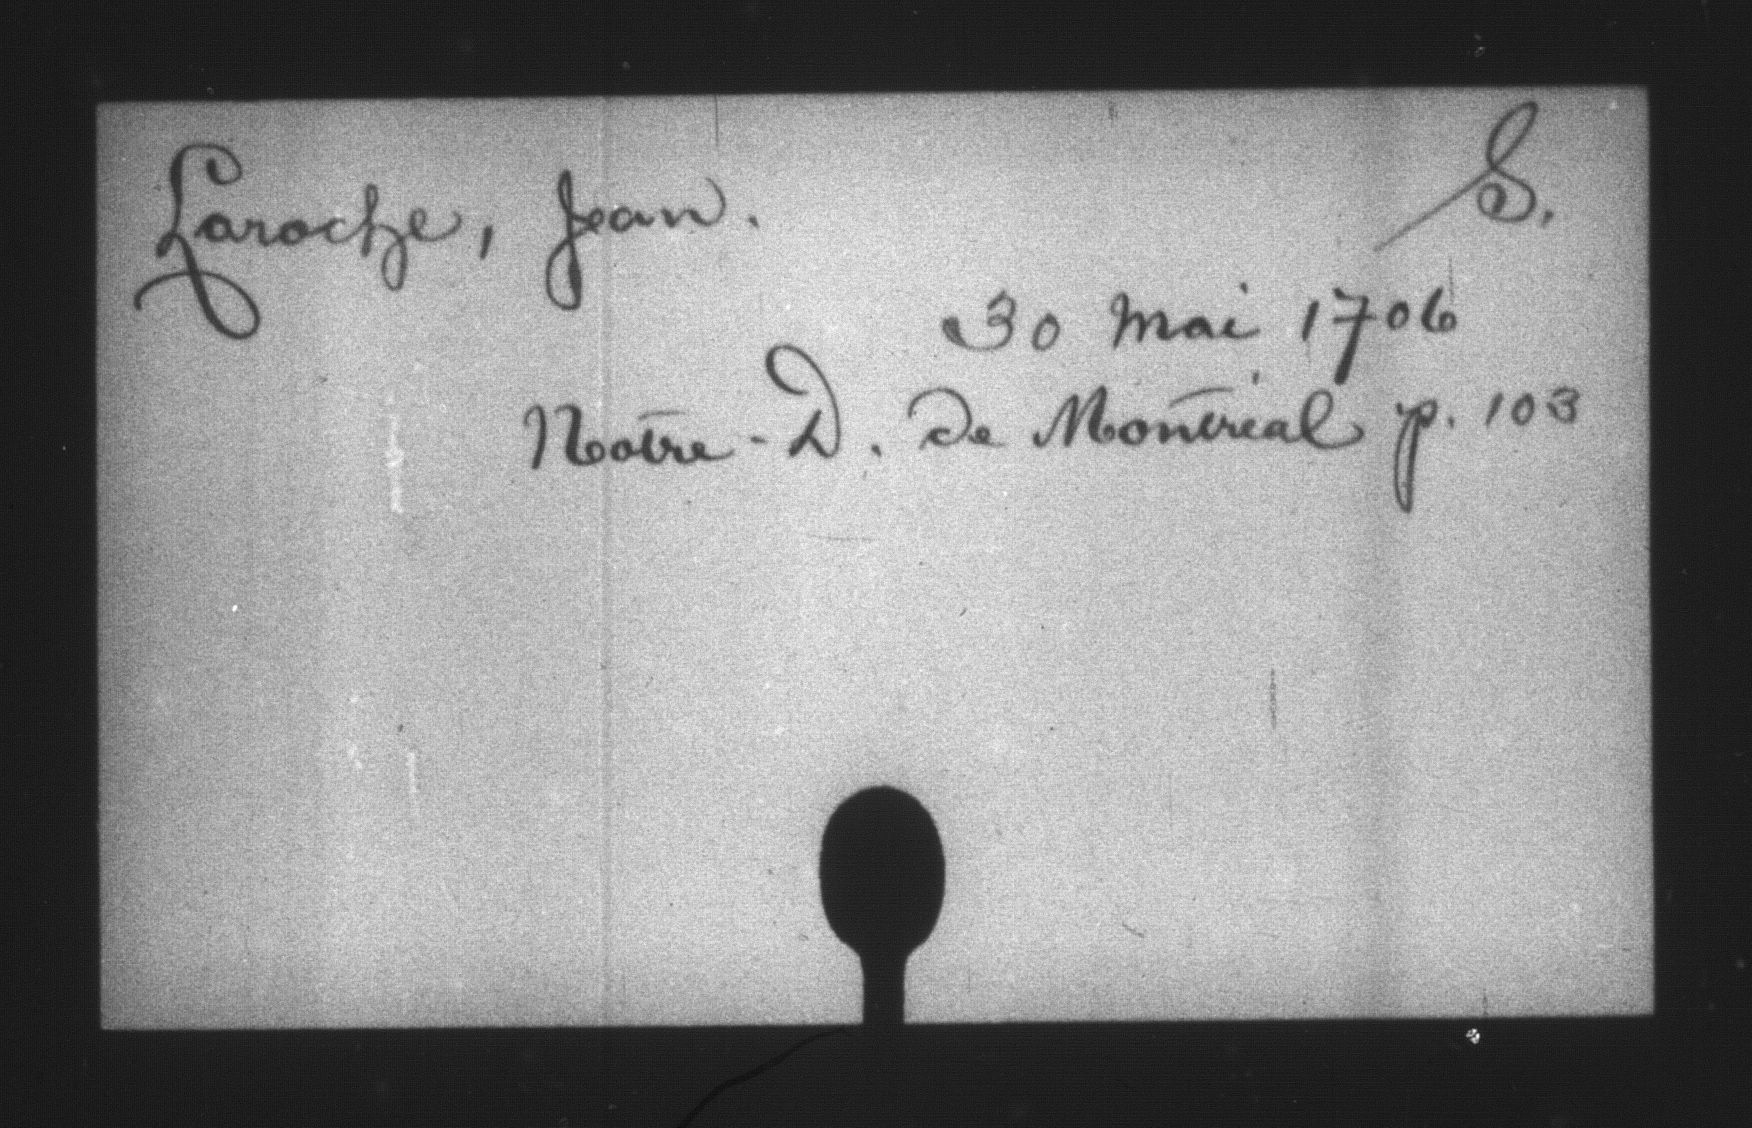 Laroche, Jean. S.
30 Mai 1706
Notre-D. de Montréal p. 103